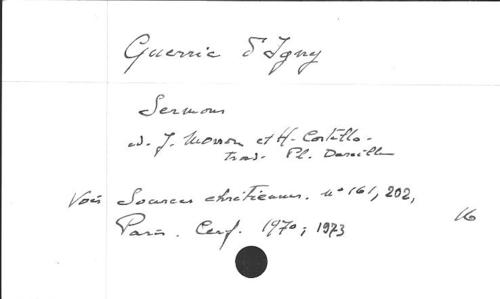 Guerric d'Igny
Sermons
ed. J. Morson et H. Costello -
trad. Pl. Deseille
Voir Sources chrétiennes. n° 161, 202,
Paris. Cerf. 1970; 1973